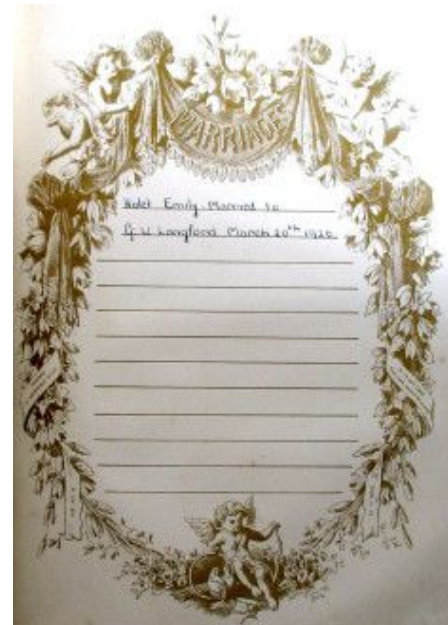 MARRIAGES
Violet Emily Married to
G W Langford March 20th 1926